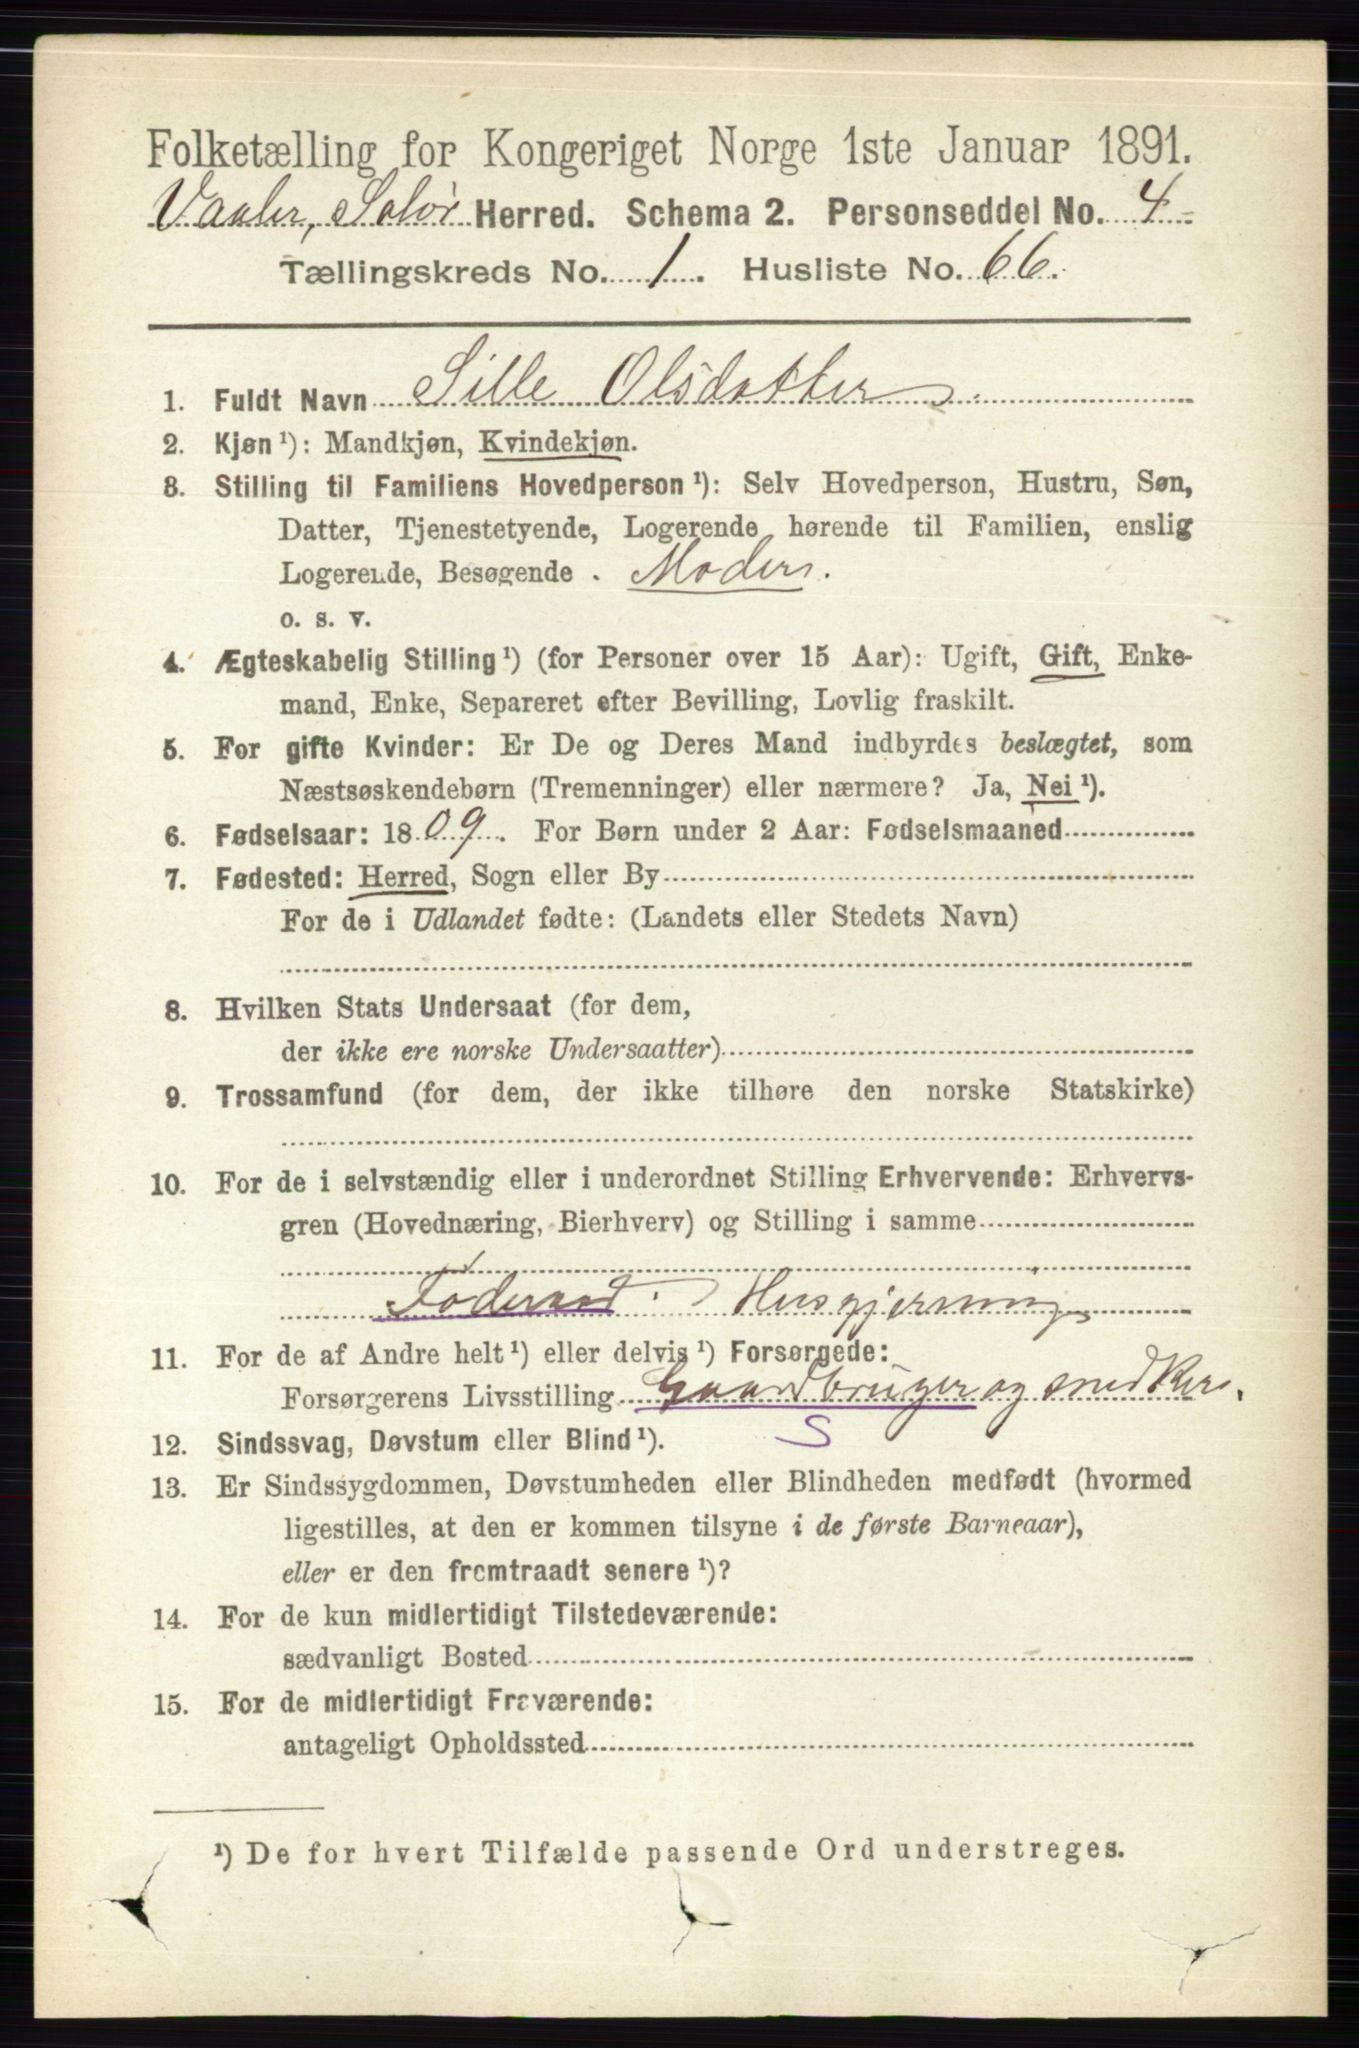 Folketælling for Kongeriget Norge 1ste Januar 1891.
Vaaler, Solør Herred. Schema 2. Personseddel No. 4
Tællingskreds No. 1. Husliste No. 66.
1. Fuldt Navn Sille Olsdatter
2. Kjøn ¹): Mandkjøn, Kvindekjøn.
3. Stilling til Familiens Hovedperson ¹): Selv Hovedperson, Hustru, Søn,
Datter, Tjenestetyende, Logerende hørende til Familien, enslig
Logerende, Besøgende . Moder.
o. s. v.
4. Ægteskabelig Stilling ¹) (for Personer over 15 Aar): Ugift, Gift, Enke-
mand, Enke, Separeret efter Bevilling, Lovlig fraskilt.
5. For gifte Kvinder: Er De og Deres Mand indbyrdes beslægtet, som
Næstsøskendebørn (Tremenninger) eller nærmere? Ja, Nei ¹).
6. Fødselsaar: 1809. For Børn under 2 Aar: Fødselsmaaned
7. Fødested: Herred, Sogn eller By
For de i Udlandet fødte: (Landets eller Stedets Navn)
8. Hvilken Stats Undersaat (for dem,
der ikke ere norske Undersaatter)
9. Trossamfund (for dem, der ikke tilhøre den norske Statskirke)
10. For de i selvstændig eller i underordnet Stilling Erhvervende: Erhvervs-
gren (Hovednæring, Bierhverv) og Stilling i samme
Føderaad. Husgjerning
11. For de af Andre helt ¹) eller delvis ¹) Forsørgede:
Forsørgerens Livsstilling Gaardbruger og snedker.
12. Sindssvag, Døvstum eller Blind ¹). S
13. Er Sindssygdommen, Døvstumheden eller Blindheden medfødt (hvormed
ligestilles, at den er kommen tilsyne i de første Barneaar),
eller er den fremtraadt senere ¹)?
14. For de kun midlertidigt Tilstedeværende:
sædvanligt Bosted
15. For de midlertidigt Fraværende:
antageligt Opholdssted
¹) De for hvert Tilfælde passende Ord understreges.